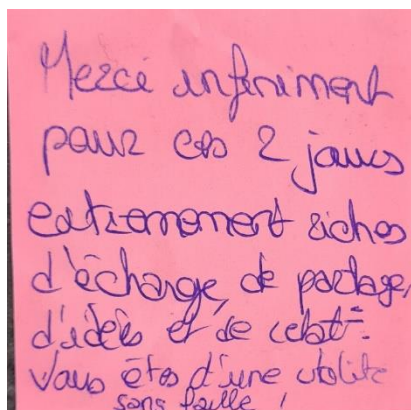 Merci infiniment
pour ces 2 jours
extrêmement riches
d'échange, de partage,
d'idées et de
Vous êtes d'une utilité
sans faille !